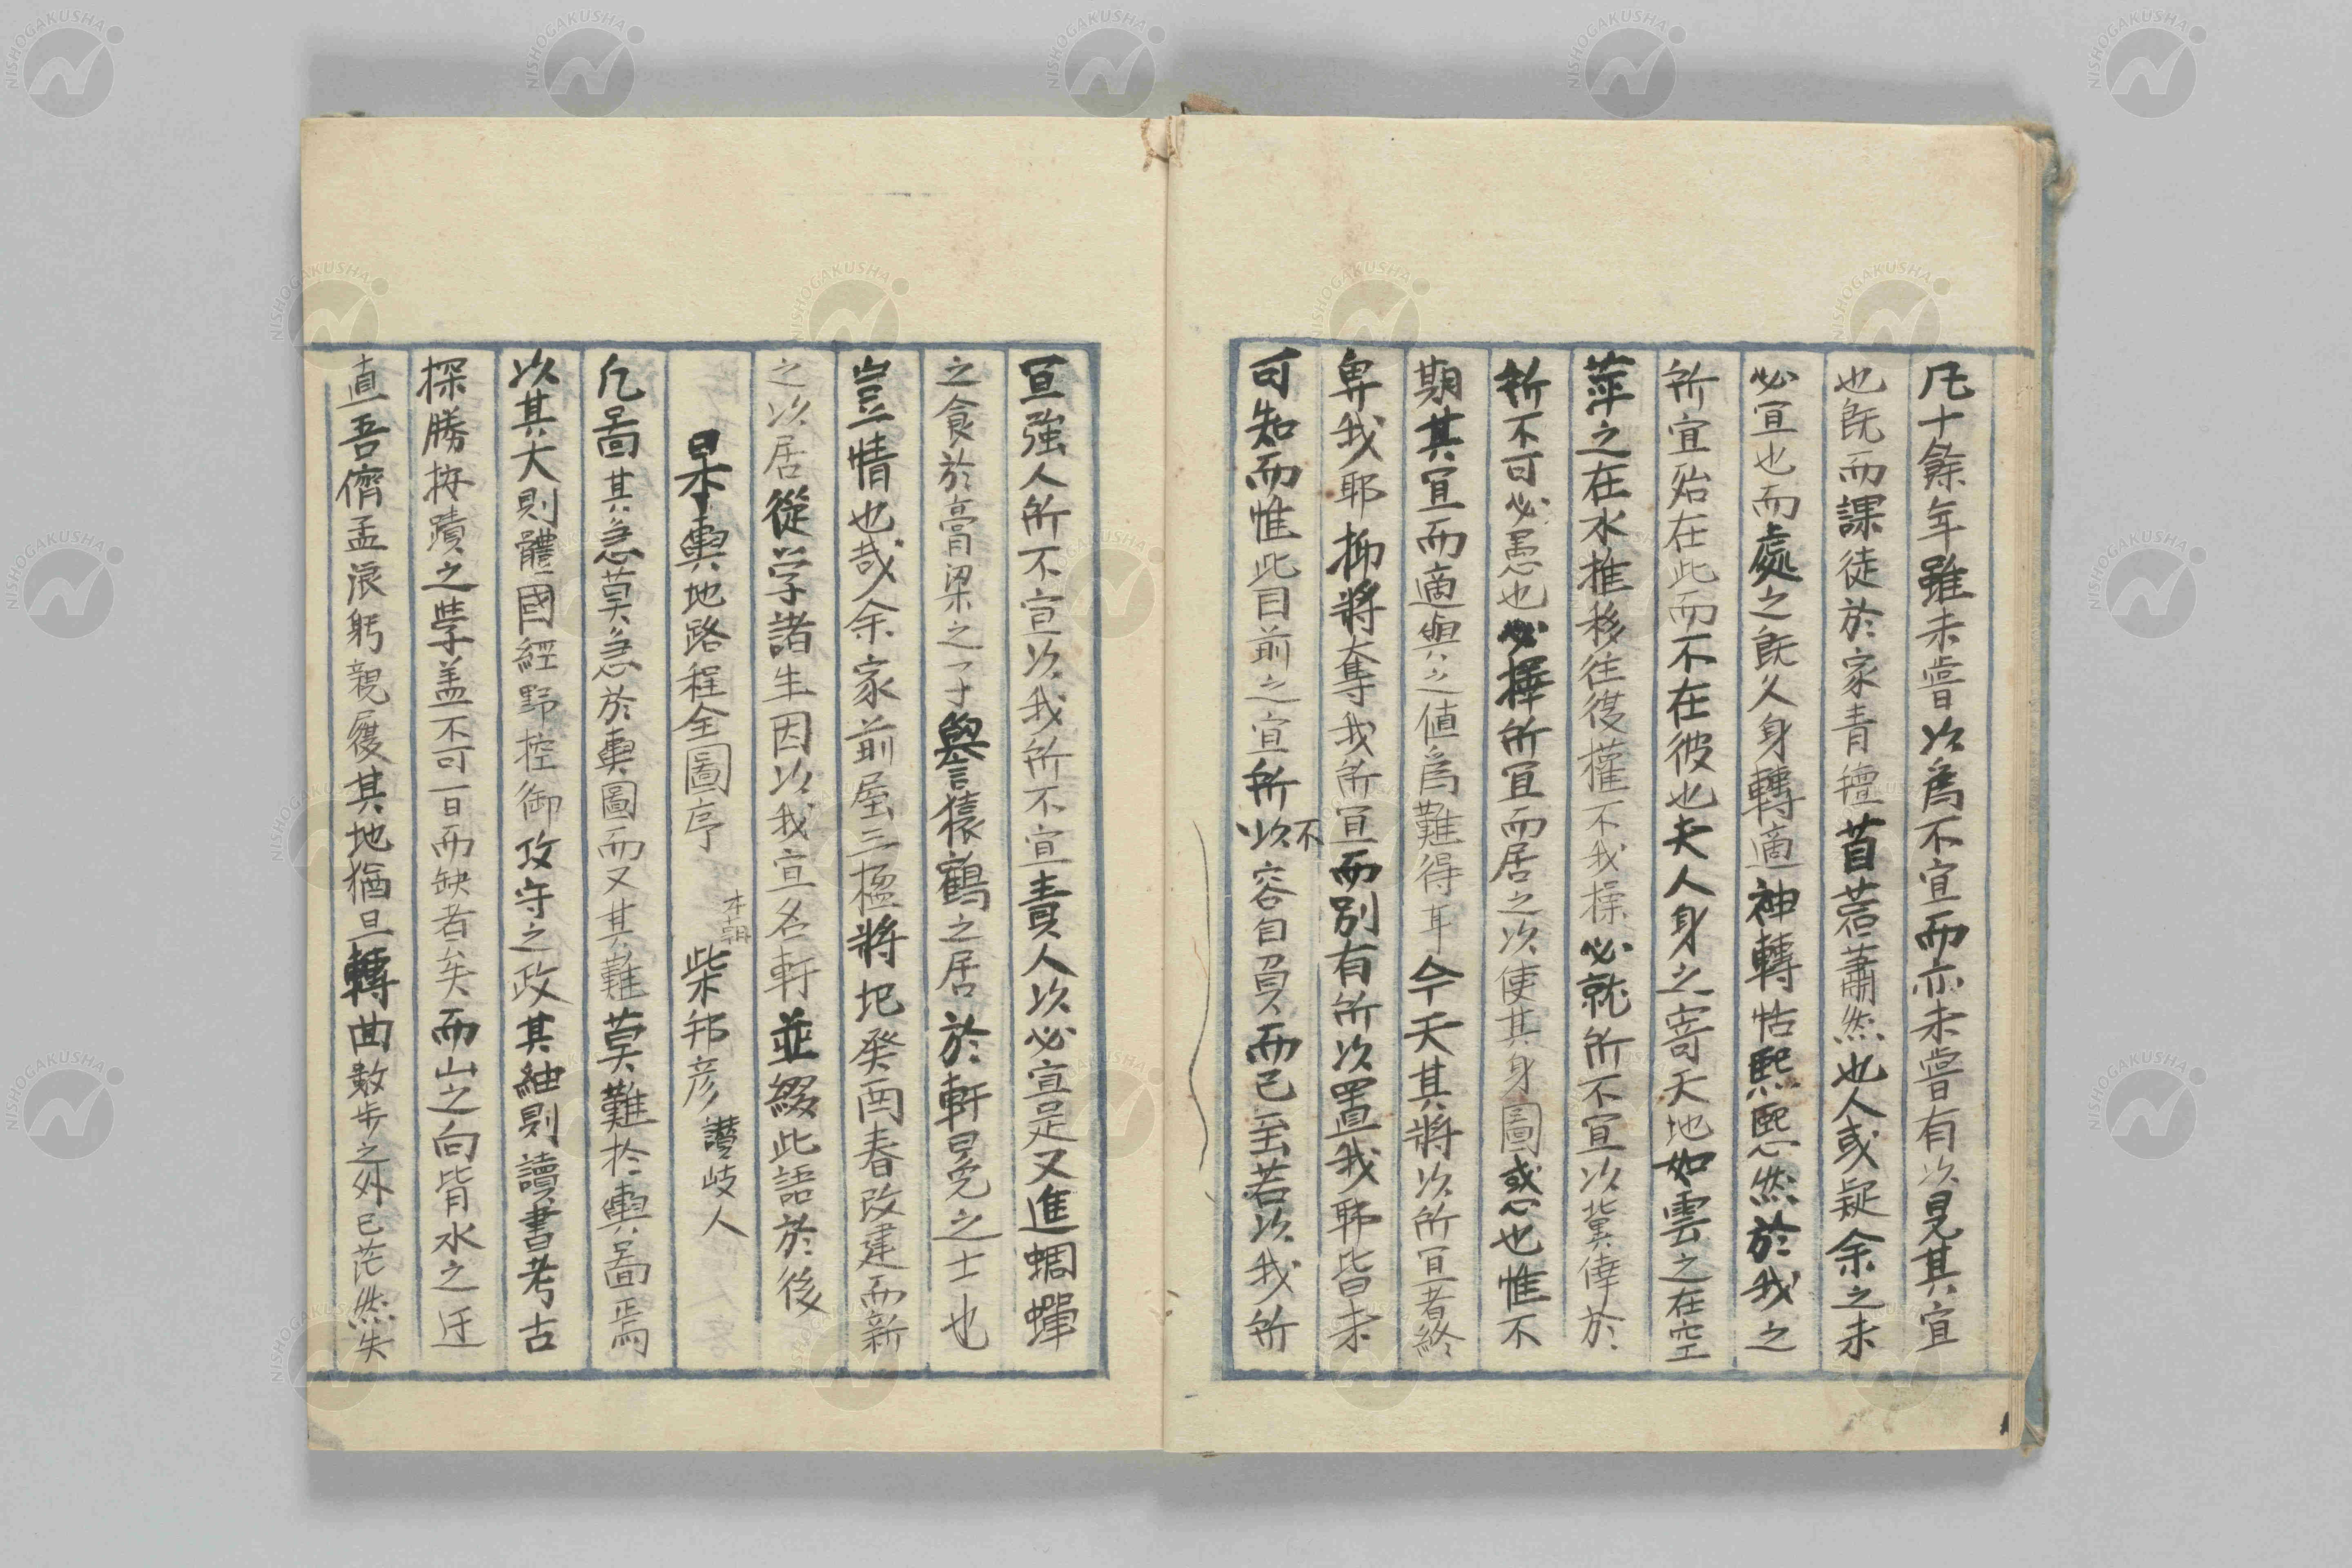 凡十餘年雖未嘗以爲不宜而亦未嘗有以見其宜
也既而課徒於家青氊苜蓿蕭然也人或疑余之未
必宜也而處之既久身轉適神轉恬熙熙然於我之
所宜殆在此而不在彼也夫人身之寄天地如雲之在空
萍之在水推移往復權不我操必就所不宜以冀倖於
所不可必愚也必擇所宜而居之以使其身圖惑也惟不
期其宜而適與之值爲難得耳今天其將以所宜者終
畀我耶抑將奪我所宜而別有所以置我耶皆未
可知而惟此目前之宜所以不容自負而已至若以我所
宜強人所不宜以我所不宜責人以必宜是又進蜩蟬
之食於膏粱之子譽猿鶴之居於軒冕之士也
豈情也哉余家前屋三楹將圮癸酉春改建而新
之以居從学諸生因以我宜名軒並綴此語於後
日本輿地路程全圖序 本朝 柴邦彦 讃岐人
凡圖其急莫急於輿圖而又其難莫難於輿圖焉
以其大則體國經野控御攻守之政其紬則讀書考古
探勝按蹟之學盖不可一日而缺者矣而山之向背水之迂
直吾儕孟浪躬親履其地猶且轉曲数歩之外已茫然失
NISHOGAKUSHA